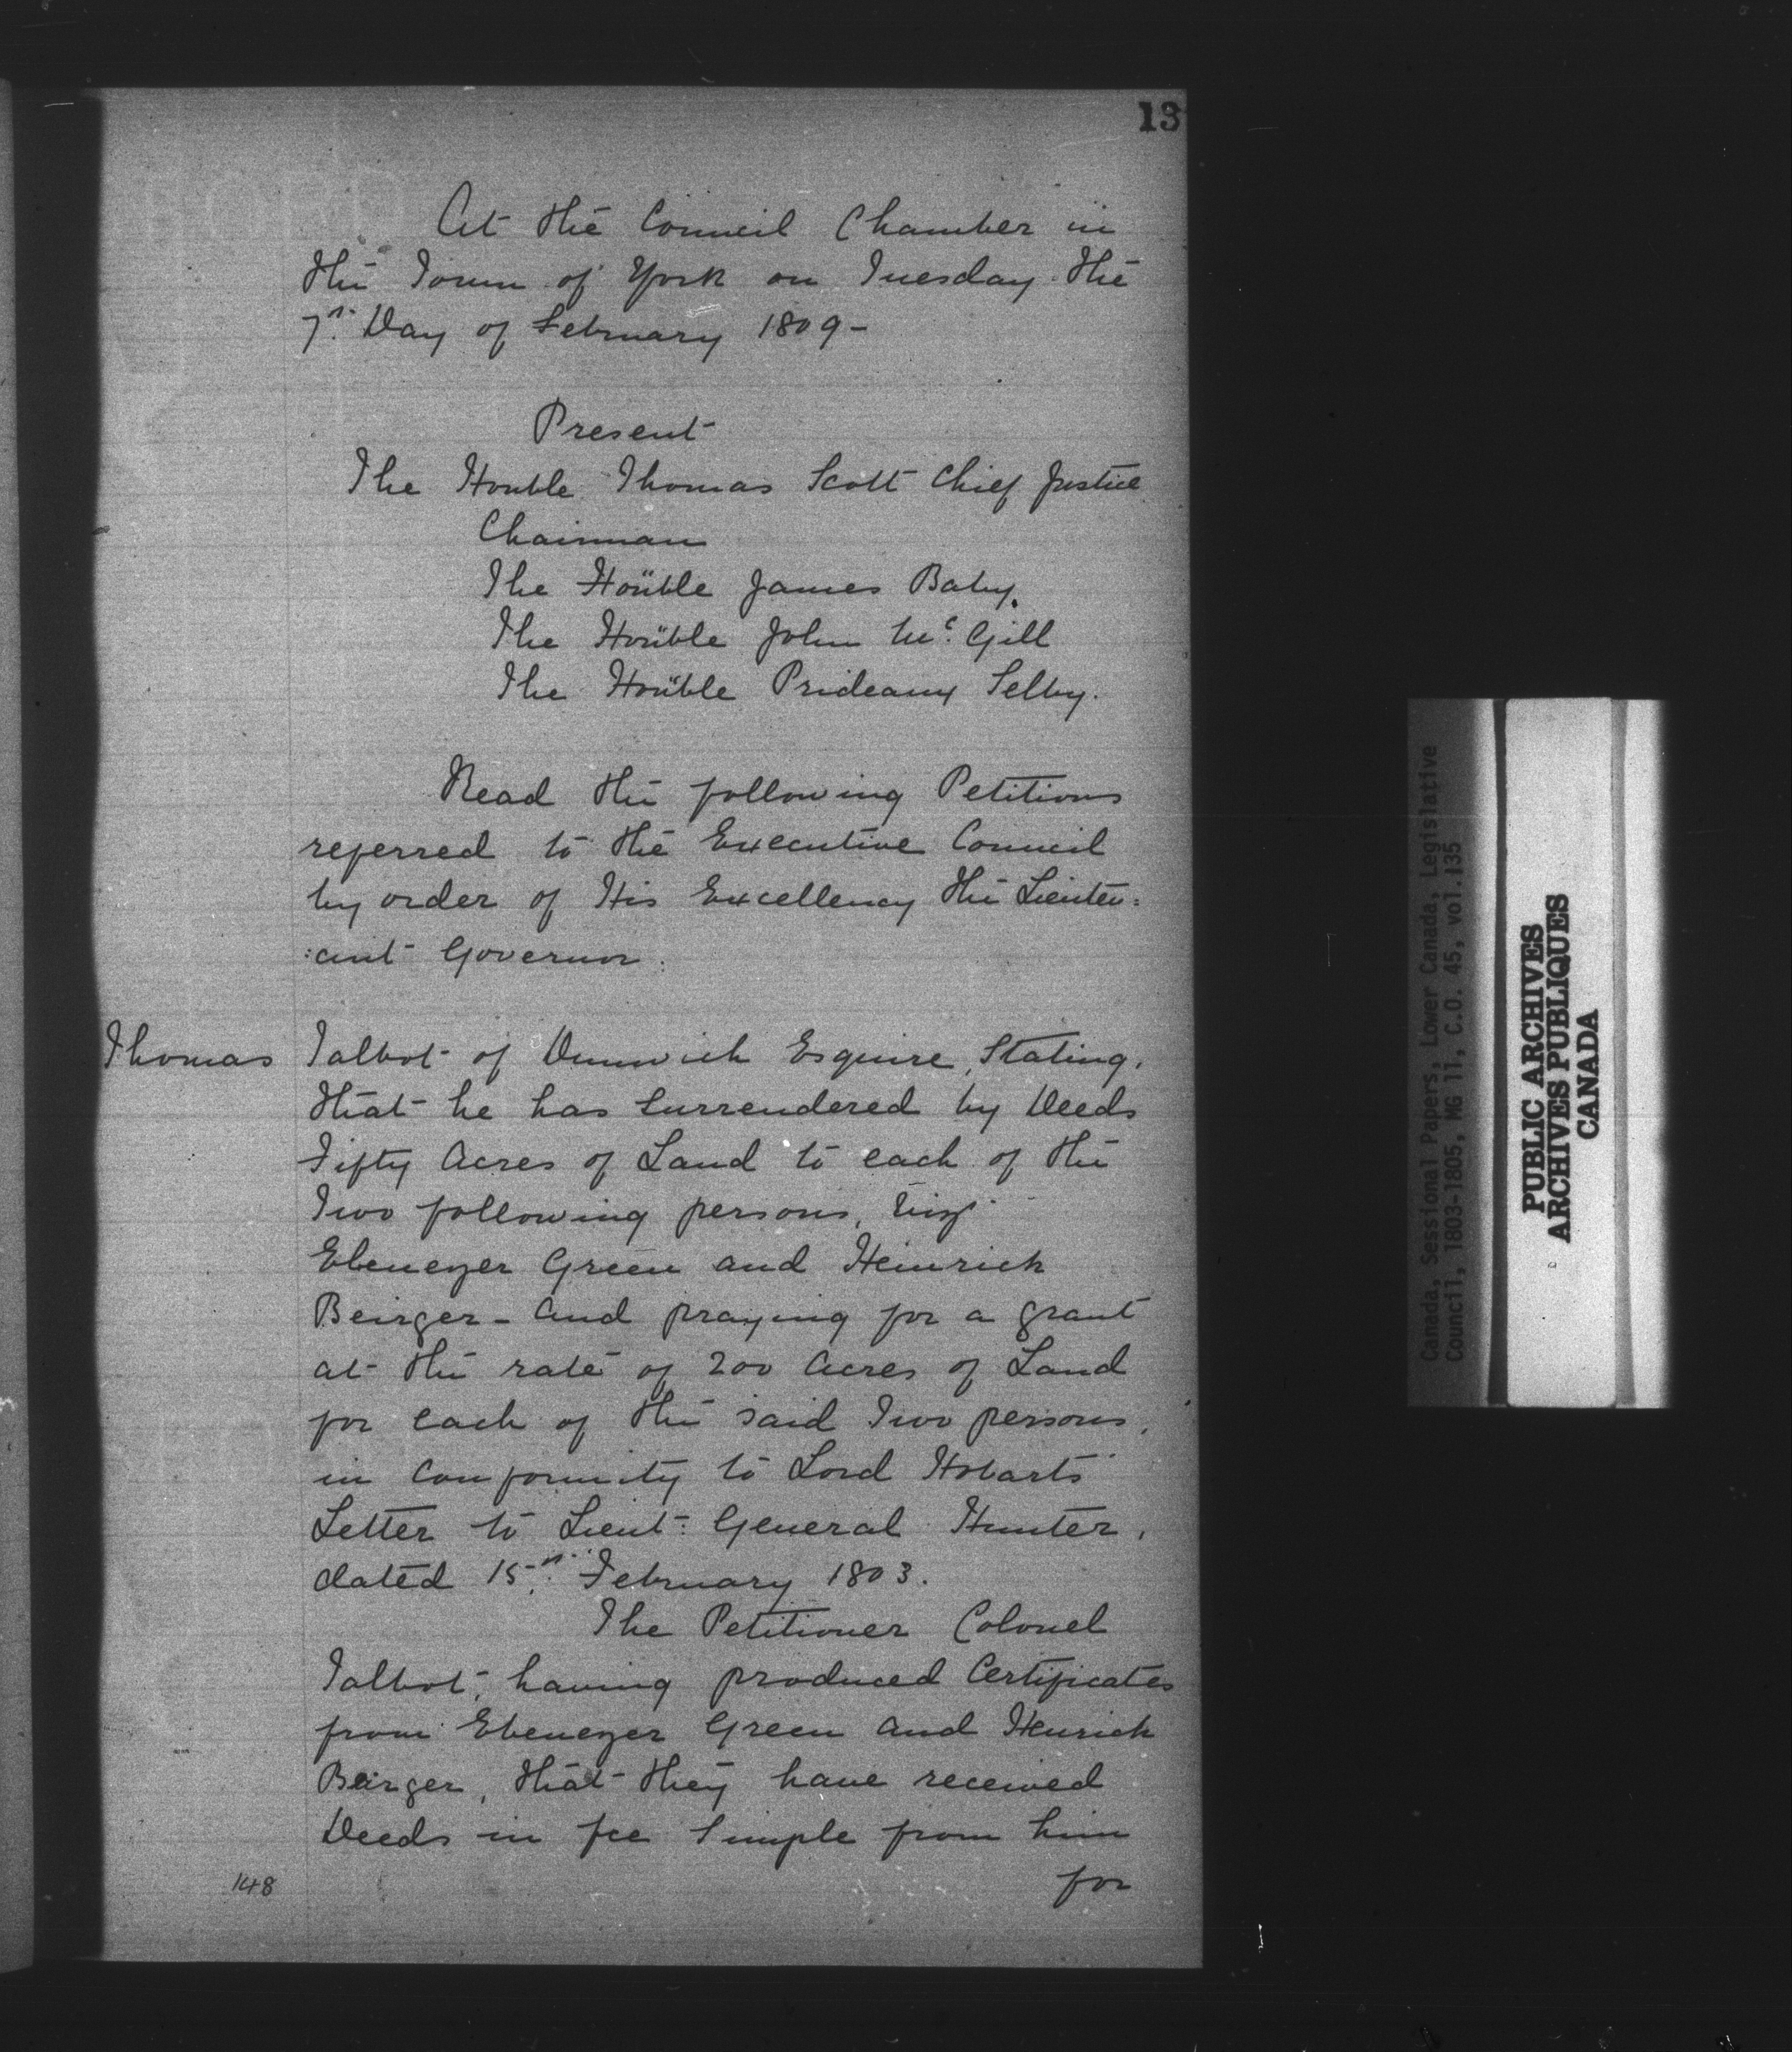 13
At the Council Chamber in
the Town of York on Tuesday the
7th Day of February 1809-
Present
The Honble Thomas Scott Chief Justice
Chairman
The Honble James Baby.
The Honble John Mc. Gill
The Honble Prideaux Selby.
Read the following Petitions
referred to the Executive Council
by order of His Excellency the Lieuten:
:ant Governor.
Thomas Talbot of Dunwich Esquire, Stating,
that he has Surrendered by Deeds
Fifty Acres of Land to each of the
Two following persons, Viz
Ebenezer Green and Heinrich
Beirger - And praying for a grant
at the rate of 200 Acres of Land
for each of the said Two persons,
in Conformity to Lord Hobarts
Letter to Lieut: General Hunter,
dated 15th February 1803.
The Petitioner Colonel
Talbot, having produced Certificates
from Ebenezer Green and Henrich
Beirger, that they have received
Deeds in fee Simple from him
for
148
Canada, Sessional Papers, Lower Canada, Legislative
Council, 1803-1805, MG 11, C.O. 45, vol.135
PUBLIC ARCHIVES
ARCHIVES PUBLIQUES
CANADA